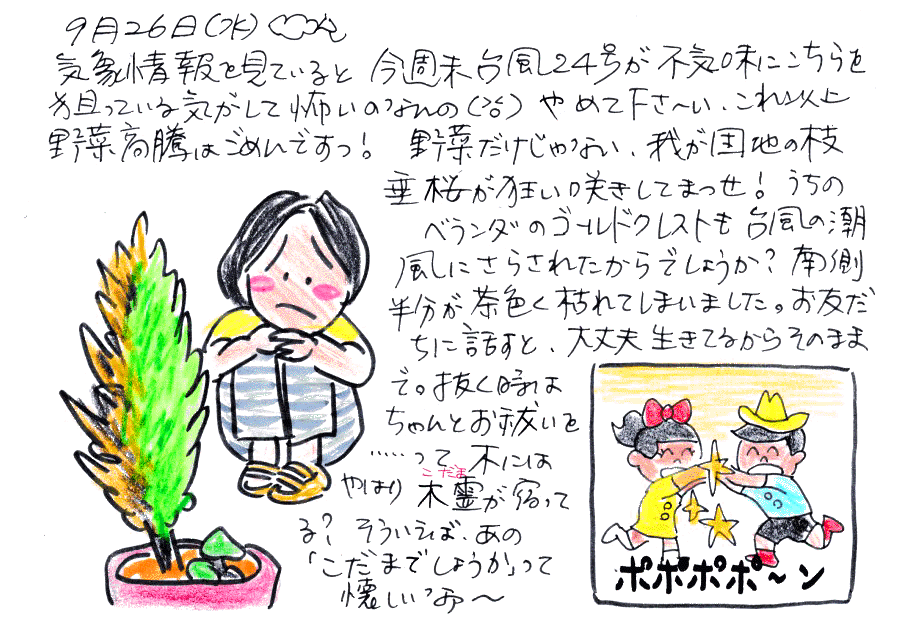 9月26日(水)
気象情報を見ていると 今週末台風24号が不気味にこちらを
狙っている気がして怖いのなんの(泣) やめて下さ〜い、これ以上
野菜高騰はごめんですっ! 野菜だけじゃない、我が団地の枝
垂桜が狂い咲きしてまっせ! うちの
ベランダのゴールドクレストも台風の潮
風にさらされたからでしょうか? 南側
半分が茶色く枯れてしまいました。お友だ
ちに話すと、大丈夫生きてるからそのまま
で。抜く時は
ちゃんとお祓いを
……って 木には
こだま
やはり木霊が宿って
る? そういえば、あの
「こだまでしょうか」って
懐しいっす〜
ポポポポ〜ン